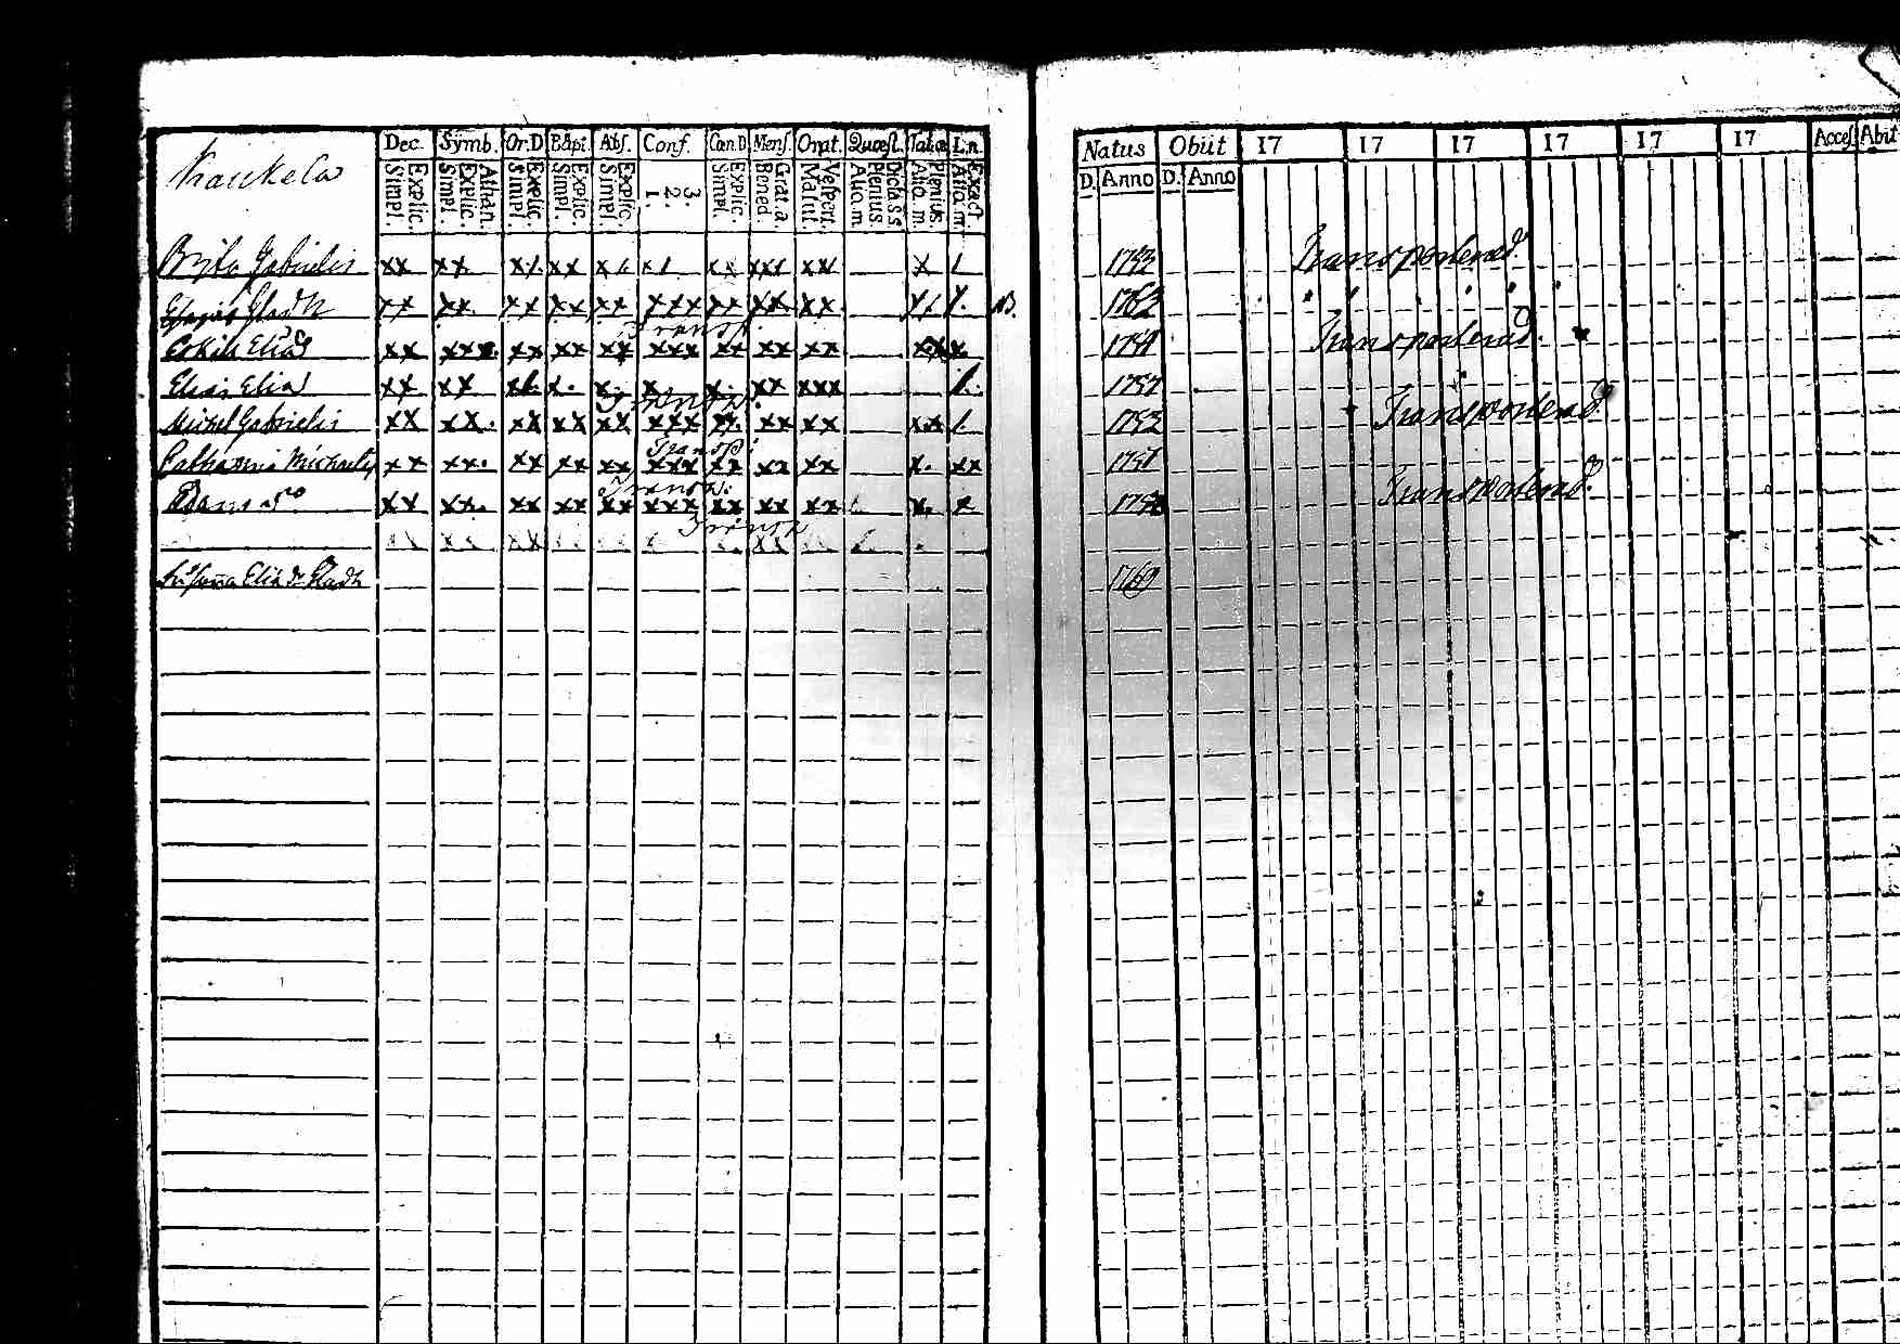 Kaukela
Dec. Symb. Or.D Bapt. Abs. Conf. Can.D Mens. Orat. Quæst. Tabæ L.n.
Explic. Simpl. Athan. Explic. Simpl. Explic. Simpl. Explic. Simpl. Explic. Simpl. 3. 2. 1. Explic. Simpl. Grat. a. Bened. Vespert. Matut. Dicta s.s. Plenius. Aliq. m. Plenius. Aliq. m. Exact Aliq. m.
Natus Obiit 17 17 17 17 17 17 Acces Abit
D. Anno D. Anno
Brijta Gabrielis xx xx x/. xx x/. x/ xx xxx xx x / 1753 Transporterad
Gladh xx xx. xx xx xx xxx xx xx. xx. x/ /. NB. 1763
Transp.
Eskill Elias xx xxx. xx xx xx xxx xx xx xx xxx x. Transporterad.
Elias Elias xx xx x/. x. x. x x. xx xxx /. 1757
Transp.
Michel Gabrielis xx xx. xx xx xx xxx x. xx xx xx /. 1752 Transporterad.
Transp.
Catharina Michaels xx xx. xx xx xx xxx xx xx xx x. xx 1751
Transp.
Adam xx xx. xx xx xx xxx xx xx xx x. x Transporterad.
Transp
Susanna Elias dr Gladh 1760